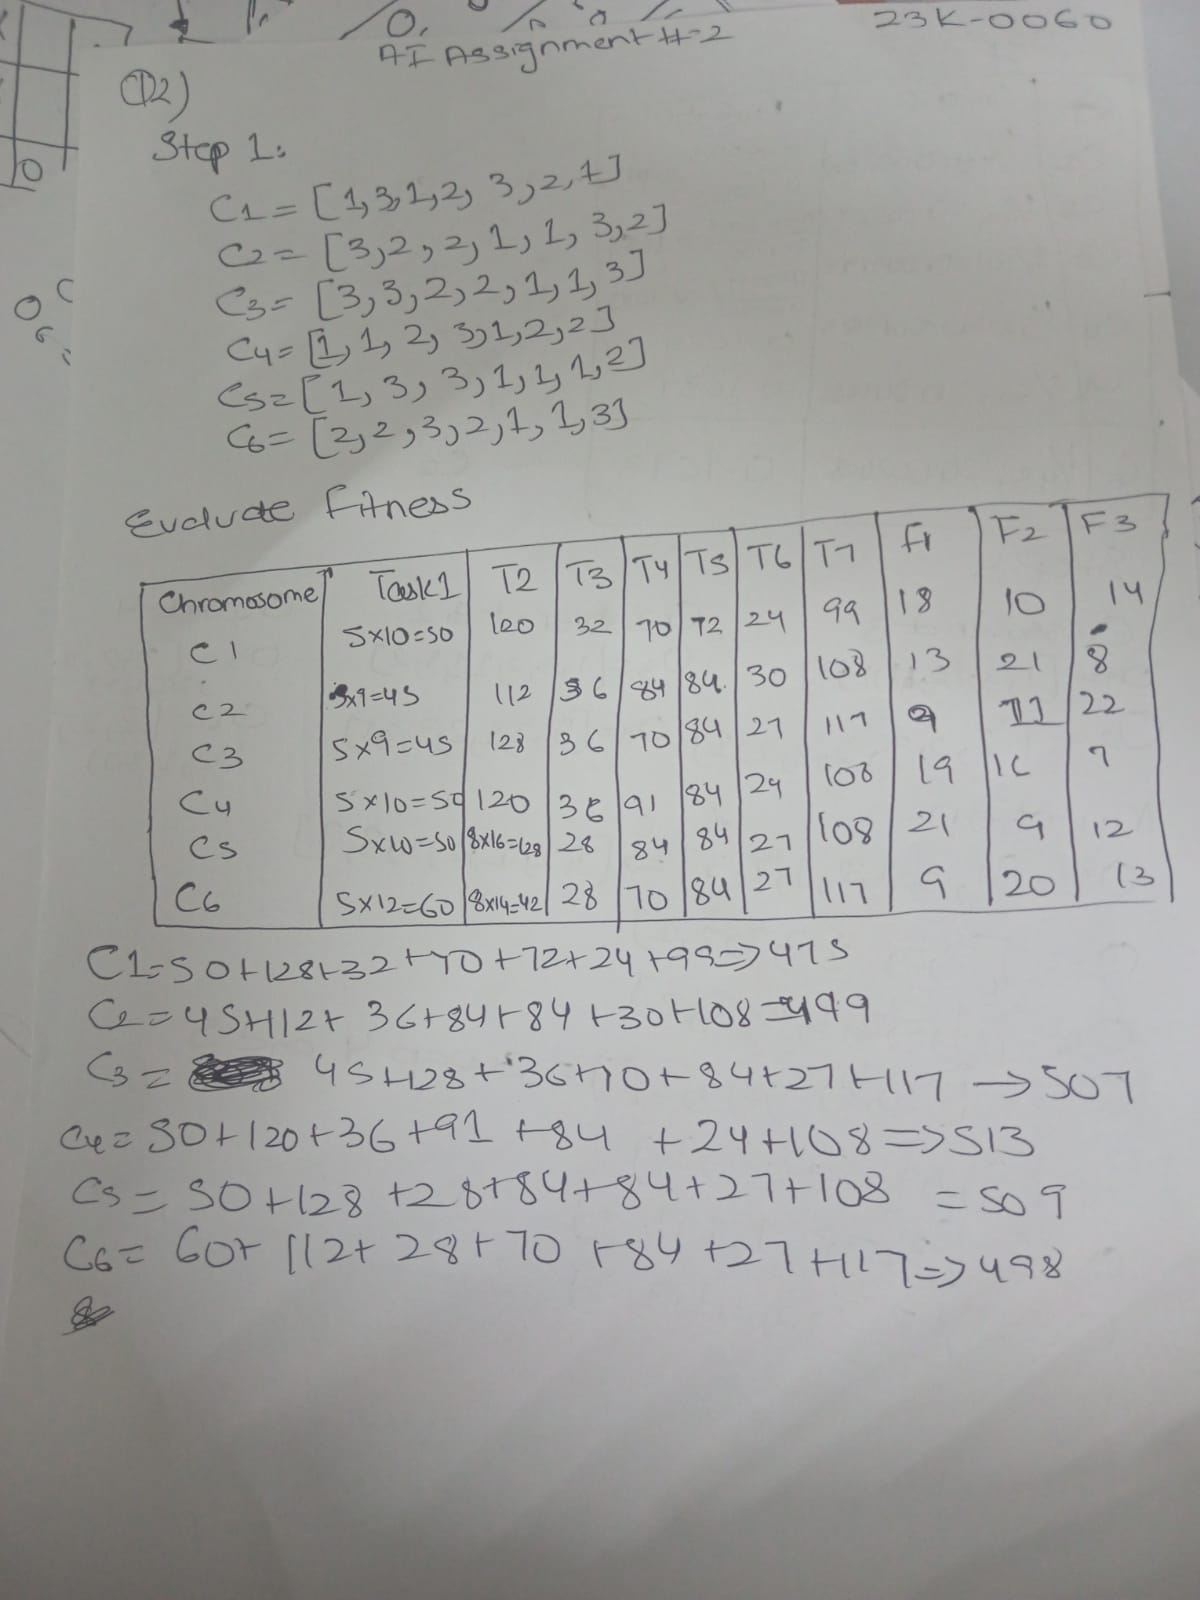 23K-0060
AI Assignment #2
Q2)
Step 1:
C1 = [1,3,1,2,3,2,1]
C2 = [3,2,2,1,1,3,2]
C3 = [3,3,2,2,1,1,3]
C4 = [1,1,2,3,1,2,2]
C5 = [1,3,3,1,1,1,2]
C6 = [2,2,3,2,1,1,3]
Evaluate Fitness
Chromosome Task1 T2 T3 T4 T5 T6 T7 F1 F2 F3
C1 5x10=50 120 32 70 72 24 99 18 10 14
C2 5x9=45 112 36 84 84 30 108 13 21 8
C3 5x9=45 128 36 70 84 27 117 9 11 22
C4 5x10=50 120 36 91 84 24 108 19 16 7
C5 5x10=50 8x16=128 28 84 84 27 108 21 9 12
C6 5x12=60 8x14=42 28 70 84 27 117 9 20 13
C1=50+128+32+70+72+24+99=>475
C2=45+112+36+84+84+30+108=499
C3= 45+128+36+70+84+27+117 →507
C4=50+120+36+91+84+24+108=>513
C5=50+128+28+84+84+27+108=509
C6=60+112+28+70+84+27+117=>498